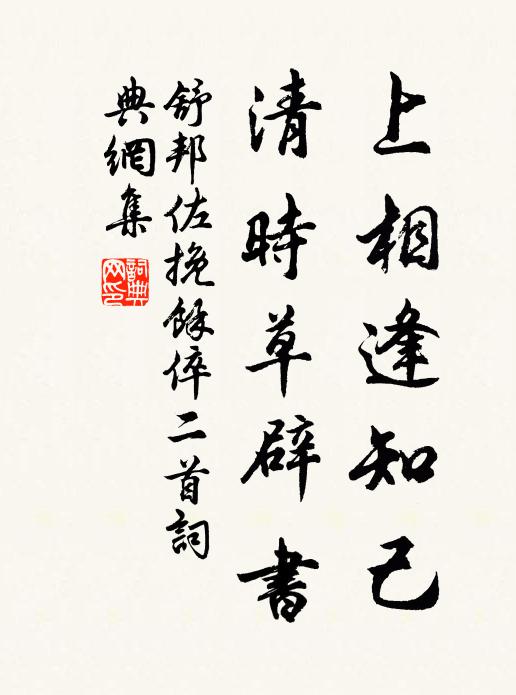 上相逢知己
清時草辟書
舒邦佐挽餘倅二首詞
典網集
詞典網印